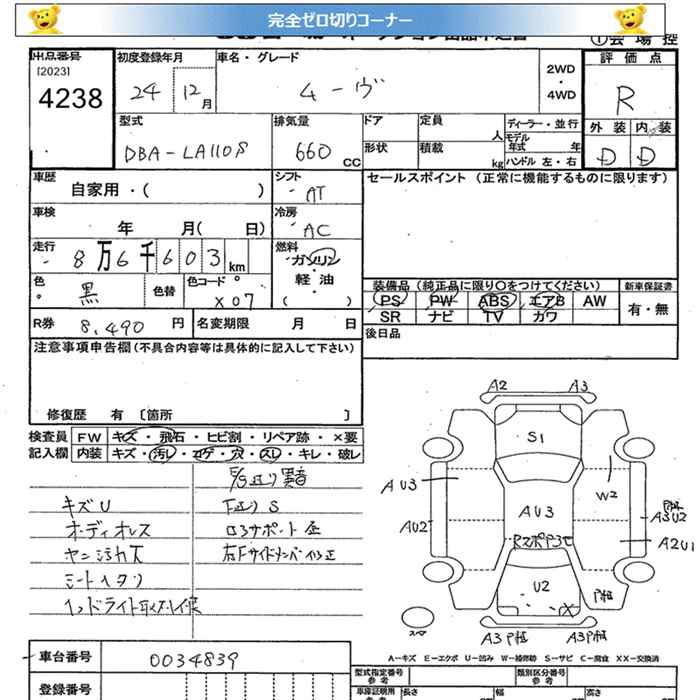 完全ゼロ切りコーナー
出品番号
[2023]
4238
初度登録年月
24 12月
車名・グレード
ムーヴ
2WD
・
4WD
評価点
R
外装 内装
D D
型式
DBA-LA110S
排気量
660 CC
ドア
定員 人
形状
積載 kg
ディーラー・並行
モデル
年式 年
ハンドル 左・右
車歴
自家用・( )
シフト
AT
車検
年 月( 日)
冷房
AC
走行
8万6千603km
燃料
ガソリン
軽油
( )
色
黒
色替
色コードNo.
X07
R券 8,490円
名変期限 月 日
セールスポイント (正常に機能するものに限ります)
装備品 (純正品に限り〇をつけてください)
新車保証書
PS PW ABS エアB AW
SR ナビ TV カワ
有・無
後日品
注意事項申告欄(不具合内容等は具体的に記入して下さい)
修復歴 有 [箇所 ]
検査員 FW キズ・飛石・ヒビ割・リペア跡・×要
記入欄 内装 キズ・汚レ・コゲ・穴・スレ・キレ・破レ
キズU
オーディオレス
ヤニ汚れ大
シートヘタリ
A2 A3
S1
AU3
W2
AU3
AU2
A3U2
A2U1
U2
A3
A3
A-キズ E-エクボ U-凹み W-補修跡 S-サビ C-腐食 XX-交換済
車台番号 0034839
登録番号
型式指定番号
参考
類別区分番号
参考
車庫証明用
参考
長さ
幅
高さ